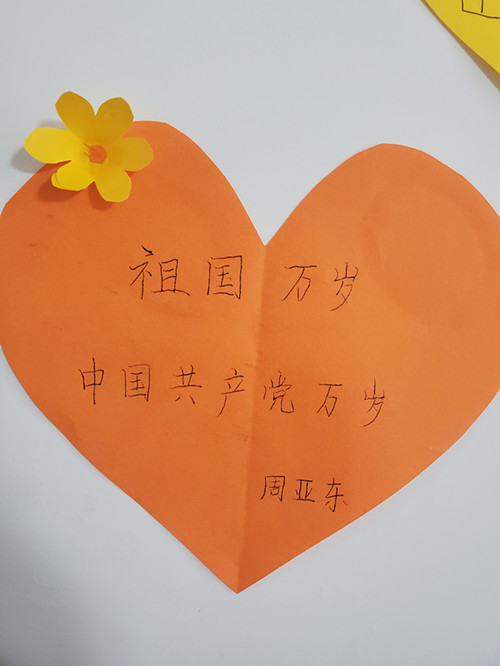 祖国万岁
中国共产党万岁
周亚东